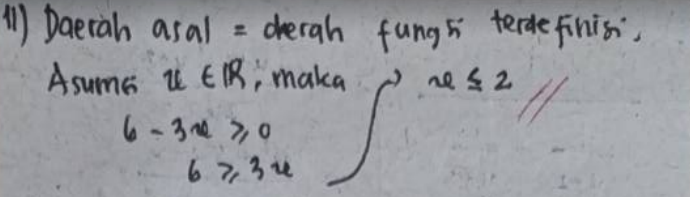 11) Daerah asal = derah fungsi terdefinisi.
Asumsi x ∈ ℝ, maka
6 - 3x ≥ 0
6 ≥ 3x
x ≤ 2 //